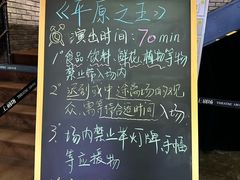 《平原之王》
演出时间：70min
1、食品、饮料、鲜花、植物等物
禁止带入场内
2、迟到或中途离场的观
众,需等待合适时间入场
3、场内禁止举灯牌、手幅
等应援物